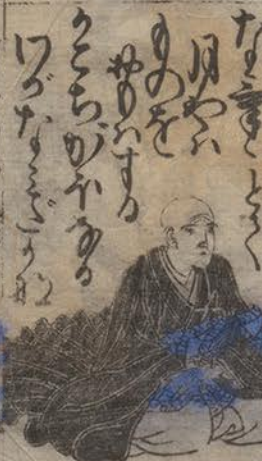 なげけとて
月やハ
ものを
おもハする
かこちがほなる
わがなみだかな